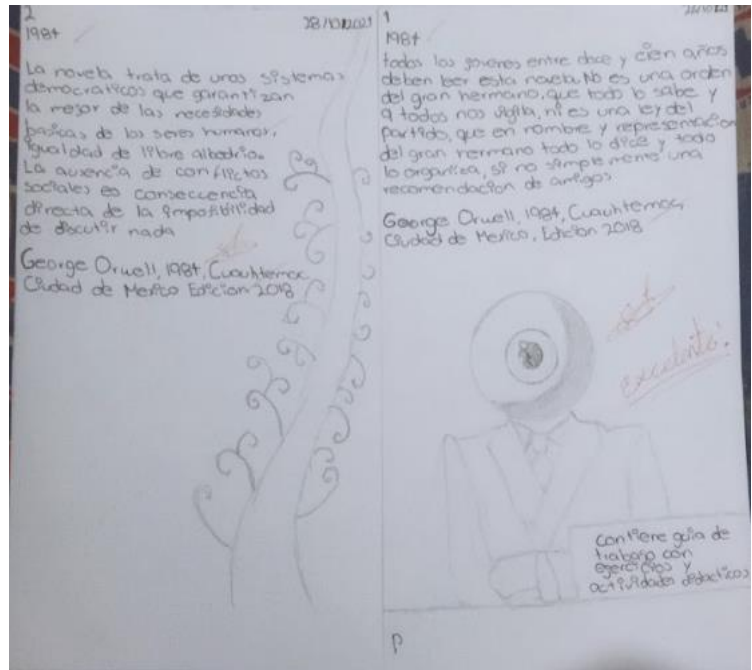 2
28/10/2021
1984
La novela trata de unos sistemas
democraticos que garantizan
la mejor de las necesidades
basicas de los seres humanos,
igualdad de libre albedrio.
La ausencia de conflictos
sociales es consecuencia
directa de la imposibilidad
de discutir nada
George Orwell, 1984, Cuauhtemoc
Ciudad de Mexico Edicion 2018
1
1984
todos los jovenes entre doce y cien años
deben leer esta novela. No es una orden
del gran hermano, que todo lo sabe y
a todos nos vigila, ni es una ley del
partido, que en nombre y representacion
del gran hermano todo lo dice y todo
lo organiza, si no simplemente una
recomendacion de amigos.
George Orwell, 1984, Cuauhtemoc,
Ciudad de Mexico, Edicion 2018
excelente!
contiene guia de
trabajo con
ejercicios y
actividades didacticos
P